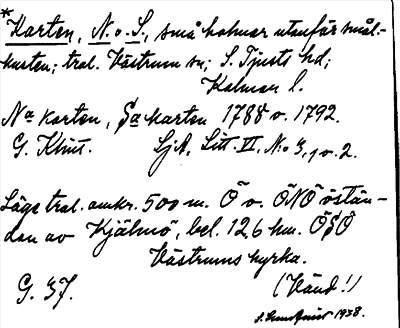 *Karten, N. o. S., små holmar utanför små-
kusten; trol. Västrum sn; S. Tjusts hd;
Kalmar l.
Na karten, Sa karten 1788 o. 1792.
G. Klint. Sjk. Litt. VI, No 3, 1 o. 2.
Läge trol. omkr. 500 m. Ö o. ÖNÖ östän-
den av Kjälmö, bel. 12,6 km. ÖSÖ
Västrums kyrka.
G. 37. (Vänd!)
1938.